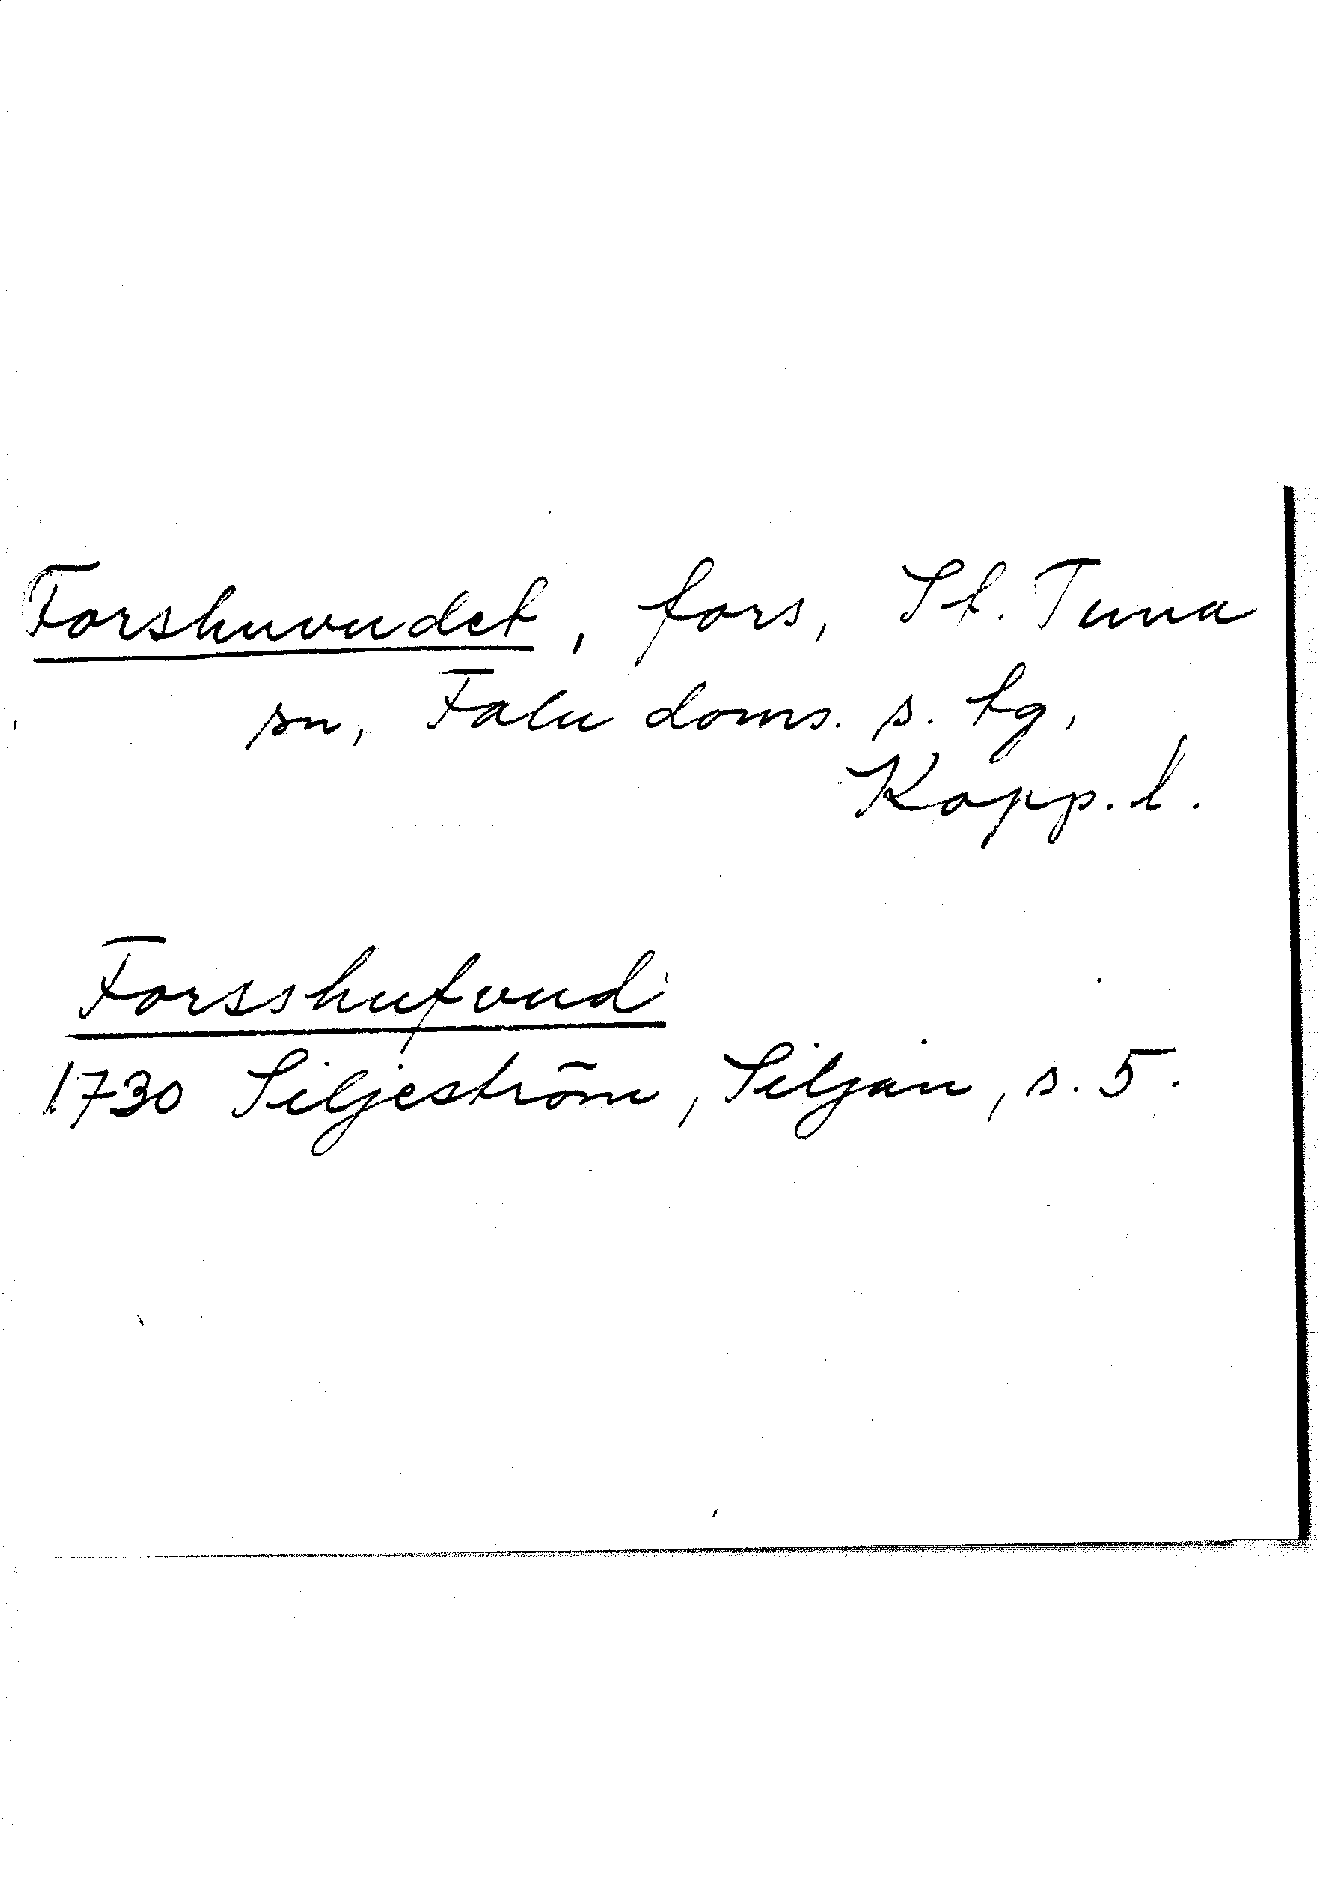 Forshuvudet, fors, St. Tuna
sn, Falu doms. s. tg,
Kopp. l.
Forsshufvud
1730 Siljeström, Siljan, s. 5.